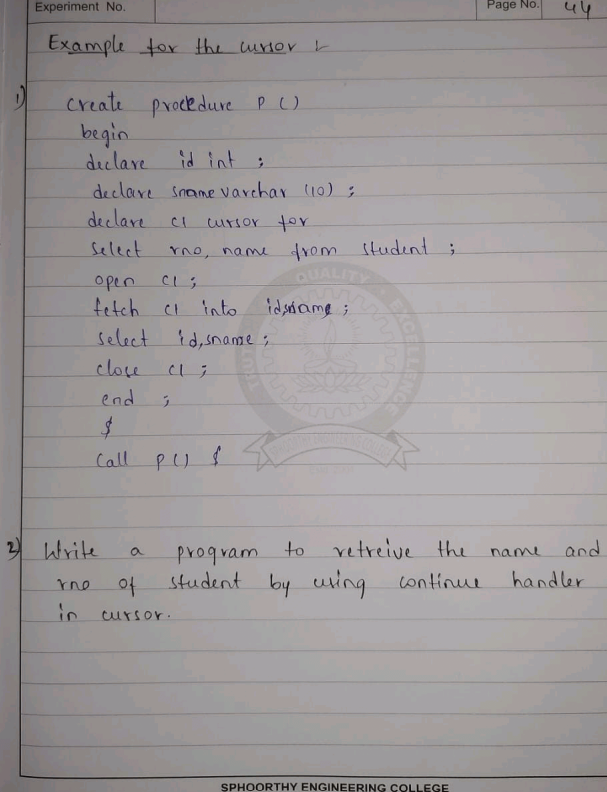 Experiment No.
Page No. 44
Example for the cursor :-
1) create procedure P ()
begin
declare id int ;
declare sname varchar (10) ;
declare c1 cursor for
select rno, name from student ;
open c1 ;
fetch c1 into id,sname ;
select id,sname ;
close c1 ;
end ;
$
call P() $
QUALITY
EXCELLENCE
2) Write a program to retreive the name and
rno of student by using continue handler
in cursor.
SPHOORTHY ENGINEERING COLLEGE